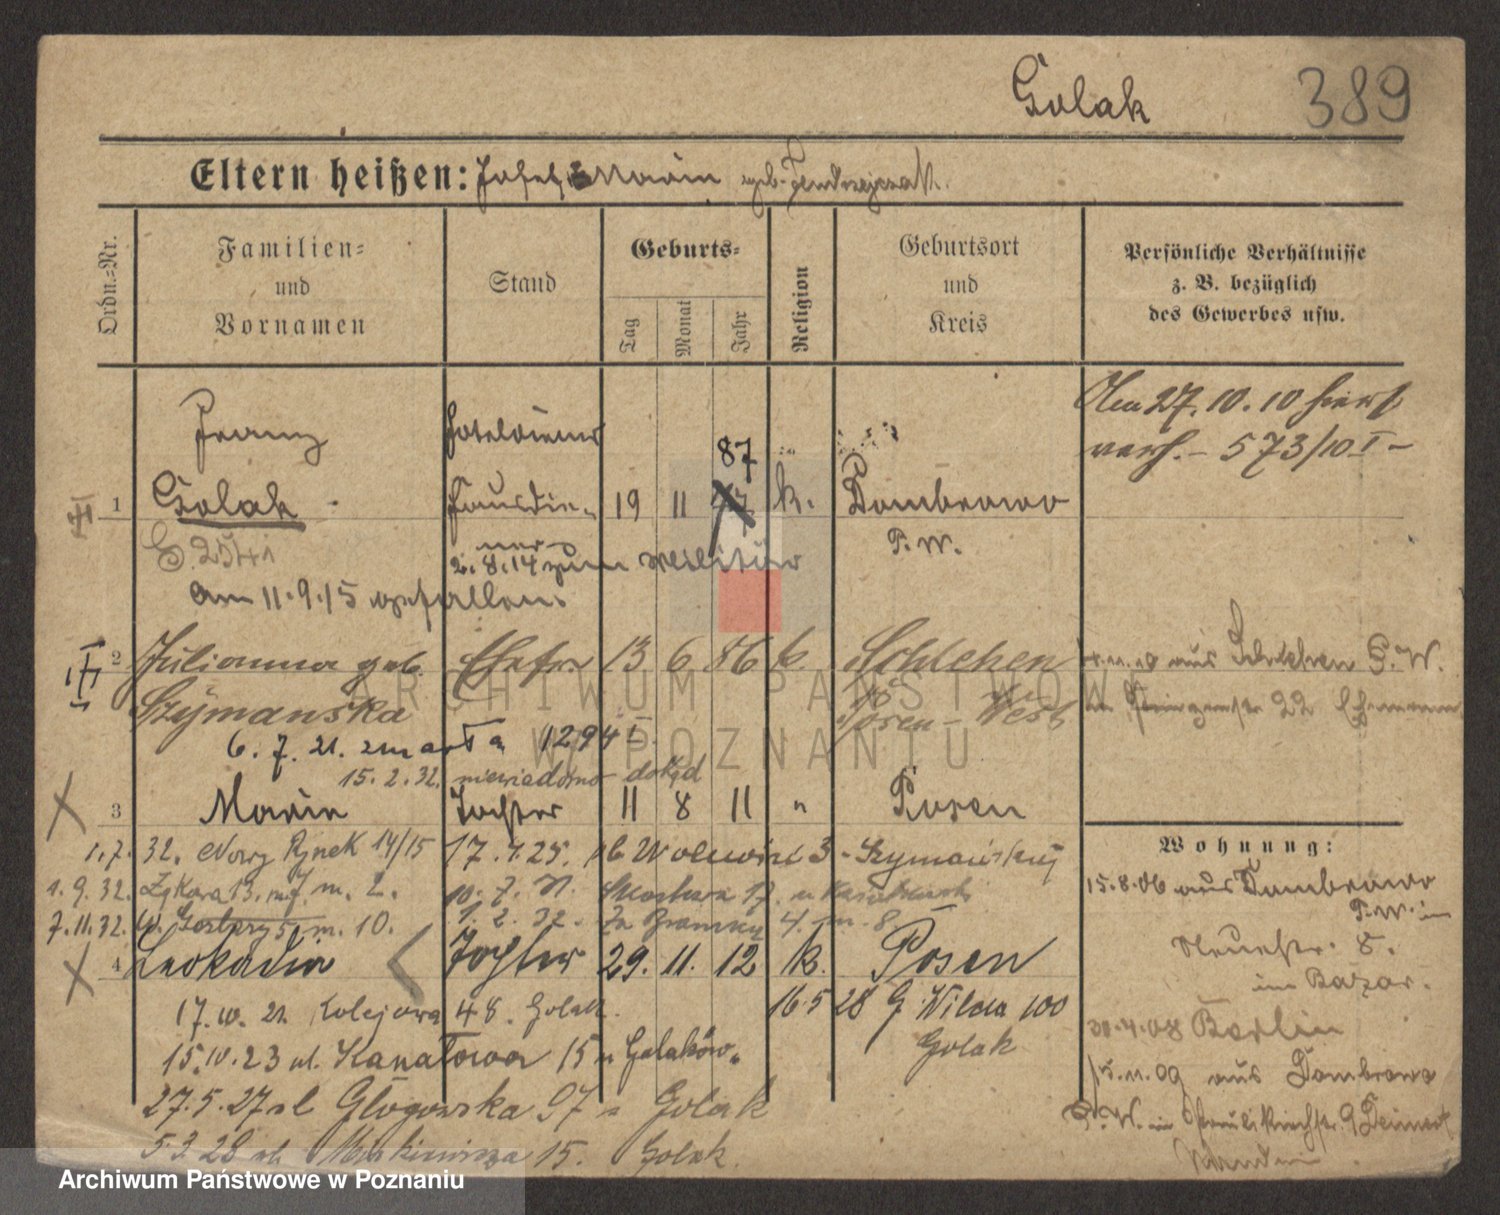 Golak 389
Eltern heißen: Josef u Maria geb. Jendrzejczak.
Ordn.=Nr.
Familien=
und
Vornamen
Stand
Geburts=
Tag
Monat
Jahr
Religion
Geburtsort
und
Kreis
Persönliche Verhältnisse
z. B. bezüglich
des Gewerbes usw.
Am 27.10.10 hiers.
verh. – 573/10 I –
Franz Hoteldiener
1 Golak Hausdie= 19 11 87 k. Dombrowo
ner P. W.
2.8.14 zum Militär
Am 11.9.15 gefallen.
2 Julianna geb. Ehefr. 13 6 86 k. Schlehen
Szymanska Posen-West
aus Schlehen P. W.
22
6. 7. 21. zmarła 1294 I
15. 2. 32. niewiadomo dokąd
3 Maria Tochter 11 8 11 " Posen
1.7. 32. Nowy Rynek 14/15 17.
1. 9. 32. 13. m. 2.
7. 11. 32. W. Garbary 5 m. 10. 1. 2. 32. Za Bramką 4. m. 8.
4 Leokadia Tochter 29. 11. 12 k. Posen
17. 10. 21. Kolejowa 48. Golak.
16 5 28 G. Wilda 100
Golak
15. IV. 23 ul. Kanałowa 15 u Golaków.
27. 5. 27 ul Głogowska 97 u Golak
5 3 28 ul. 15. Golak.
Wohnung:
15.8.06 aus Dombrowo
P. W. in
Neuestr. 8.
im Bazar.
Berlin
15. 11. 09 aus Dombrowo
P. W. in Paulikirchstr. 9
ARCHIWUM PAŃSTWOWE
W POZNANIU
Archiwum Państwowe w Poznaniu